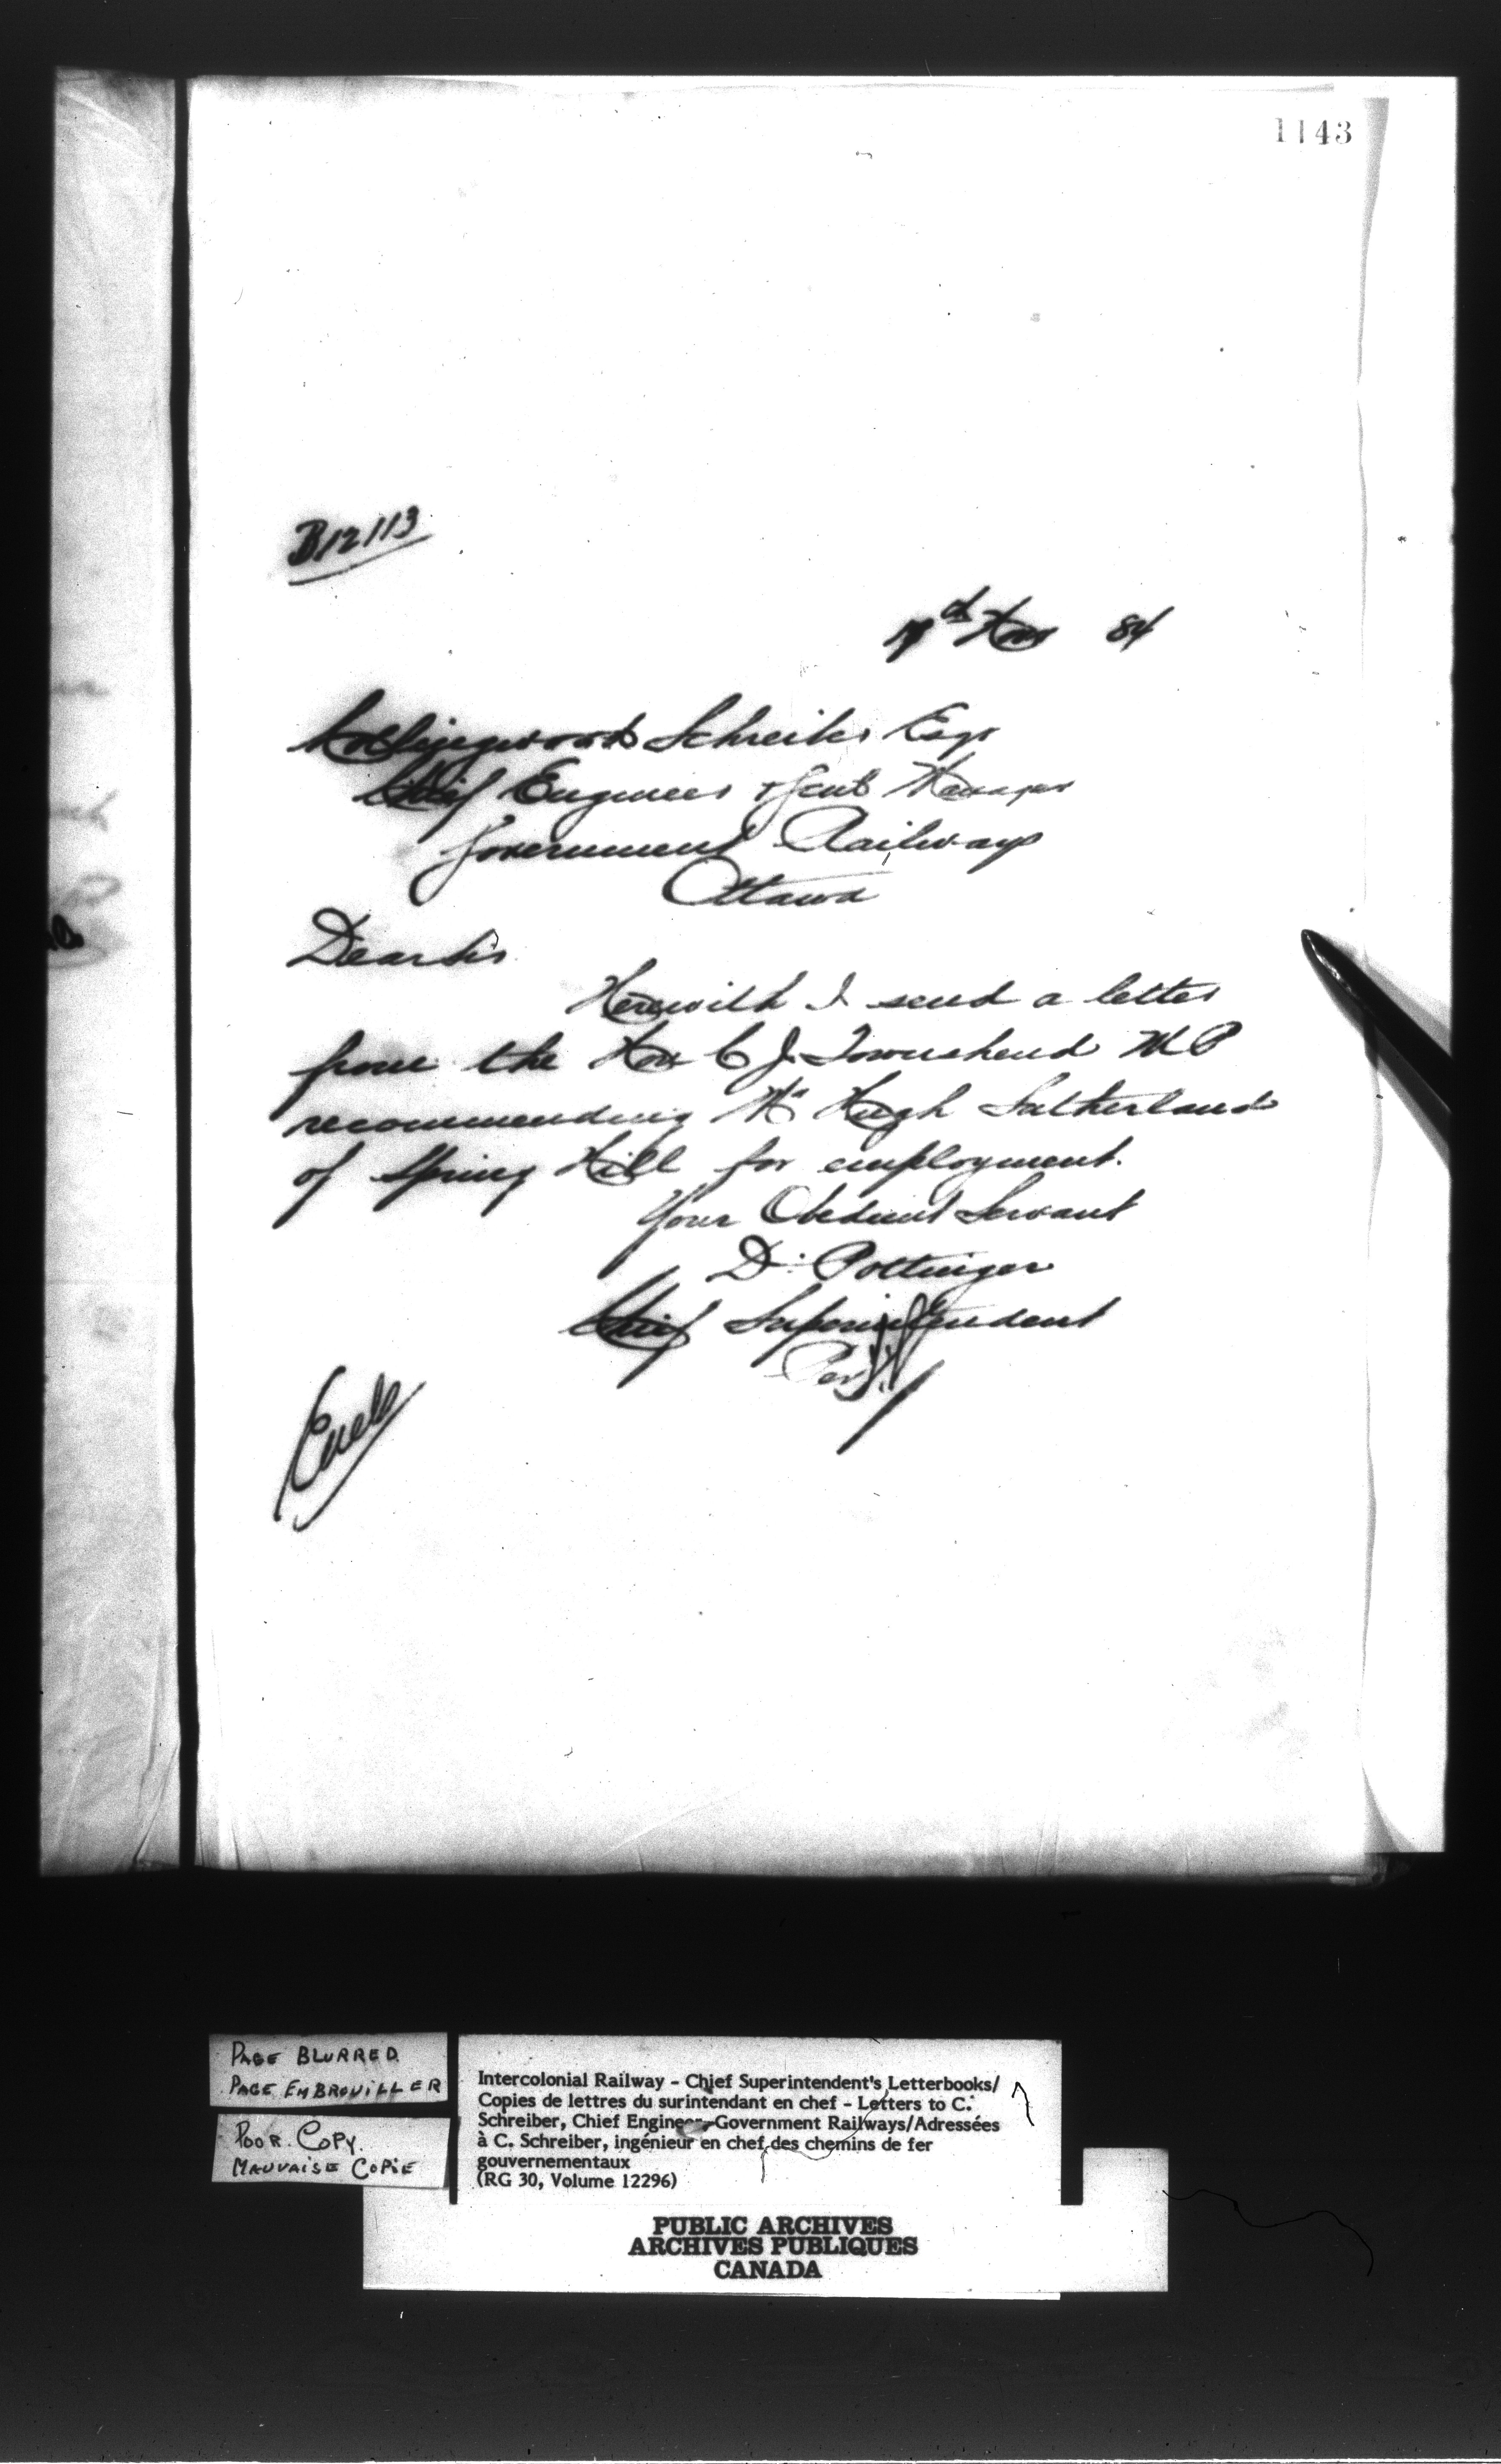 1143
B12113
Nov 84
Collingwood Schreiber Esqr
Chief Engineer & Genl Manager
Government Railways
Ottawa
Dear Sir
Herewith I send a letter
from the Hon C J. Townshend MP
recommending Mr Hugh Sutherland
of Spring Hill for employment.
Your Obedient Servant
D. Pottinger
Chief Superintendent
Per
Encl
PAGE BLURRED
PAGE EMBROUILLER
POOR COPY.
MAUVAISE COPIE
Intercolonial Railway - Chief Superintendent's Letterbooks/
Copies de lettres du surintendant en chef - Letters to C.
Schreiber, Chief Engineer-Government Railways/Adressées
à C. Schreiber, ingénieur en chef des chemins de fer
gouvernementaux
(RG 30, Volume 12296)
PUBLIC ARCHIVES
ARCHIVES PUBLIQUES
CANADA